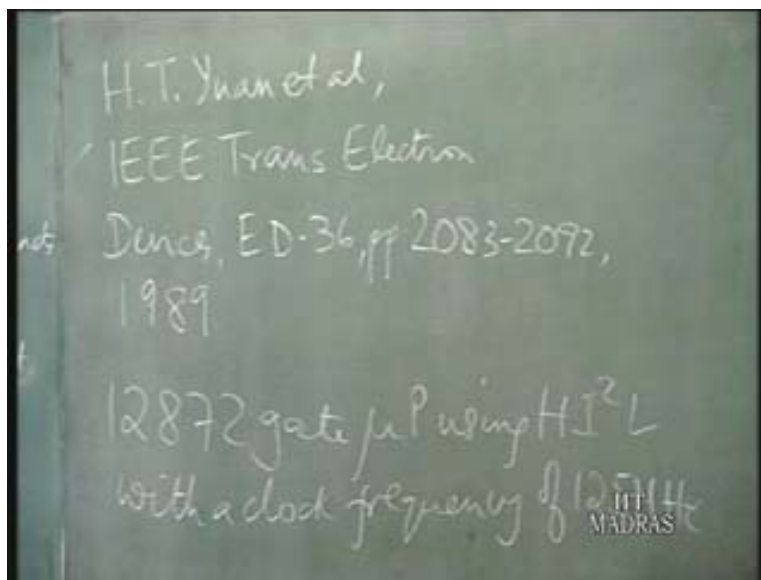 H.T. Yuan et al,
IEEE Trans Electron
Devices, ED-36, pp 2083-2092,
1989
12872 gate μP using HI²L
with a clock frequency of
IIT
MADRAS